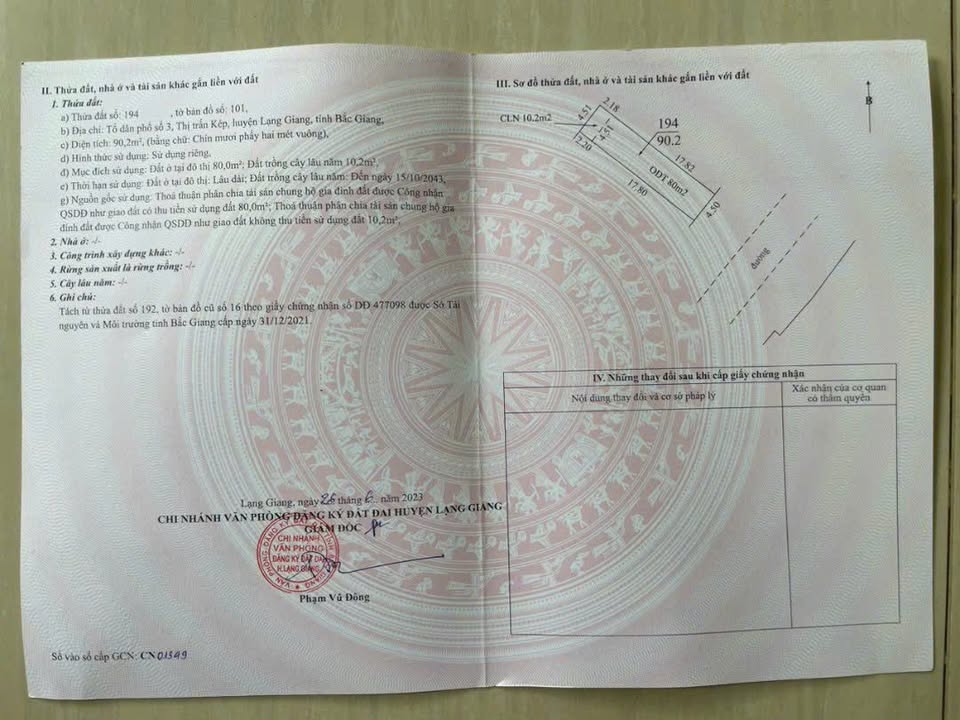 II. Thửa đất, nhà ở và tài sản khác gắn liền với đất
1. Thửa đất:
a) Thửa đất số: 194 , tờ bản đồ số: 101,
b) Địa chỉ: Tổ dân phố số 3, Thị trấn Kép, huyện Lạng Giang, tỉnh Bắc Giang,
c) Diện tích: 90,2m², (bằng chữ: Chín mươi phẩy hai mét vuông),
d) Hình thức sử dụng: Sử dụng riêng,
đ) Mục đích sử dụng: Đất ở tại đô thị 80,0m²; Đất trồng cây lâu năm 10,2m²,
e) Thời hạn sử dụng: Đất ở tại đô thị: Lâu dài; Đất trồng cây lâu năm: Đến ngày 15/10/2043,
g) Nguồn gốc sử dụng: Thoả thuận phân chia tài sản chung hộ gia đình đất được Công nhận
QSDĐ như giao đất có thu tiền sử dụng đất 80,0m²; Thoả thuận phân chia tài sản chung hộ gia
đình đất được Công nhận QSDĐ như giao đất không thu tiền sử dụng đất 10,2m²;
2. Nhà ở: -/-
3. Công trình xây dựng khác: -/-
4. Rừng sản xuất là rừng trồng: -/-
5. Cây lâu năm: -/-
6. Ghi chú:
Tách từ thửa đất số 192, tờ bản đồ cũ số 16 theo giấy chứng nhận số DĐ 477098 được Sở Tài
nguyên và Môi trường tỉnh Bắc Giang cấp ngày 31/12/2021.
Lạng Giang, ngày 26 tháng 6 năm 2023
CHI NHÁNH VĂN PHÒNG ĐĂNG KÝ ĐẤT ĐAI HUYỆN LẠNG GIANG
GIÁM ĐỐC
CHI NHÁNH
VĂN PHÒNG
ĐĂNG KÝ ĐẤT ĐAI
H.LẠNG GIANG
Phạm Vũ Đông
Số vào sổ cấp GCN: CN 01349
III. Sơ đồ thửa đất, nhà ở và tài sản khác gắn liền với đất
B
CLN 10.2m2
4.51
2.18
4.51
2.20
194
90.2
17.82
ODT 80m2
17.80
4.50
đường
IV. Những thay đổi sau khi cấp giấy chứng nhận
Nội dung thay đổi và cơ sở pháp lý
Xác nhận của cơ quan
có thẩm quyền